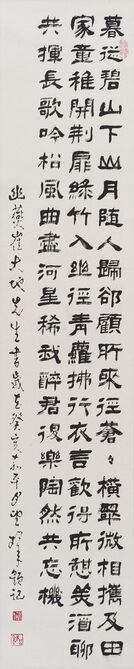 暮從碧山下山月随人歸卻顧所來徑蒼々橫翠微相攜及田
家童稚開荊扉綠竹入幽徑青蘿拂行衣言歡得所憩美酒聊
共揮長歌吟松風曲盡河星稀我醉君復樂陶然共忘機
幽燕崔大地先生書歲在癸亥